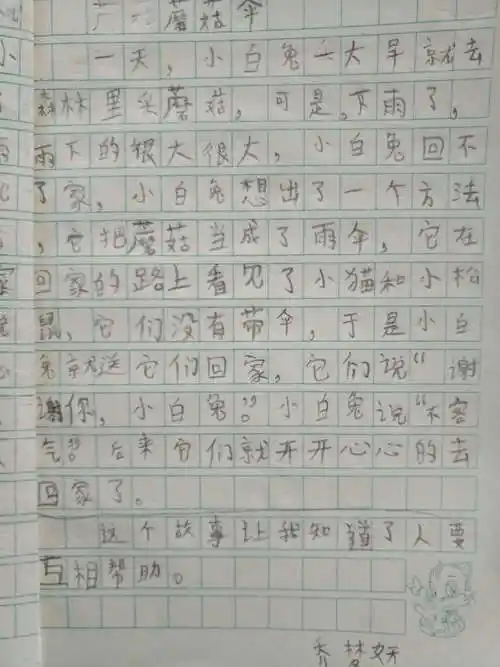 蘑菇伞
一天，小白兔一大早就去
森林里采蘑菇，可是，下雨了，
雨下的很大很大，小白兔回不
了家，小白兔想出了一个方法
，它把蘑菇当成了雨伞，它在
回家的路上看见了小猫和小松
鼠，它们没有带伞，于是小白
兔就送它们回家，它们说“谢
谢你，小白兔”。小白兔说“不客
气”。后来它们就开开心心的去
回家了。
这个故事让我知道了人要
互相帮助。